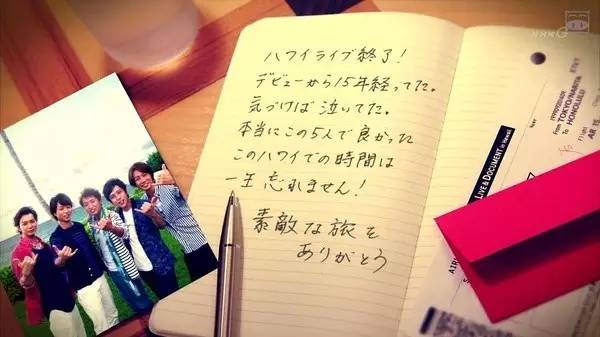 NHK G
ハワイライブ終了！
デビューから15年経ってた。
気づけば泣いてた。
本当にこの5人で良かった
このハワイでの時間は
一生忘れません！
素敵な旅を
ありがとう
From TOKYO/NARITA
To HONOLULU
LIVE & DOCUMENT in Hawaii